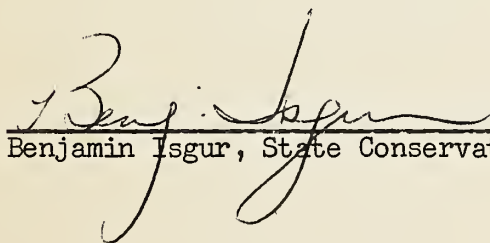 Benj. Isgur
Benjamin Isgur, State Conserva